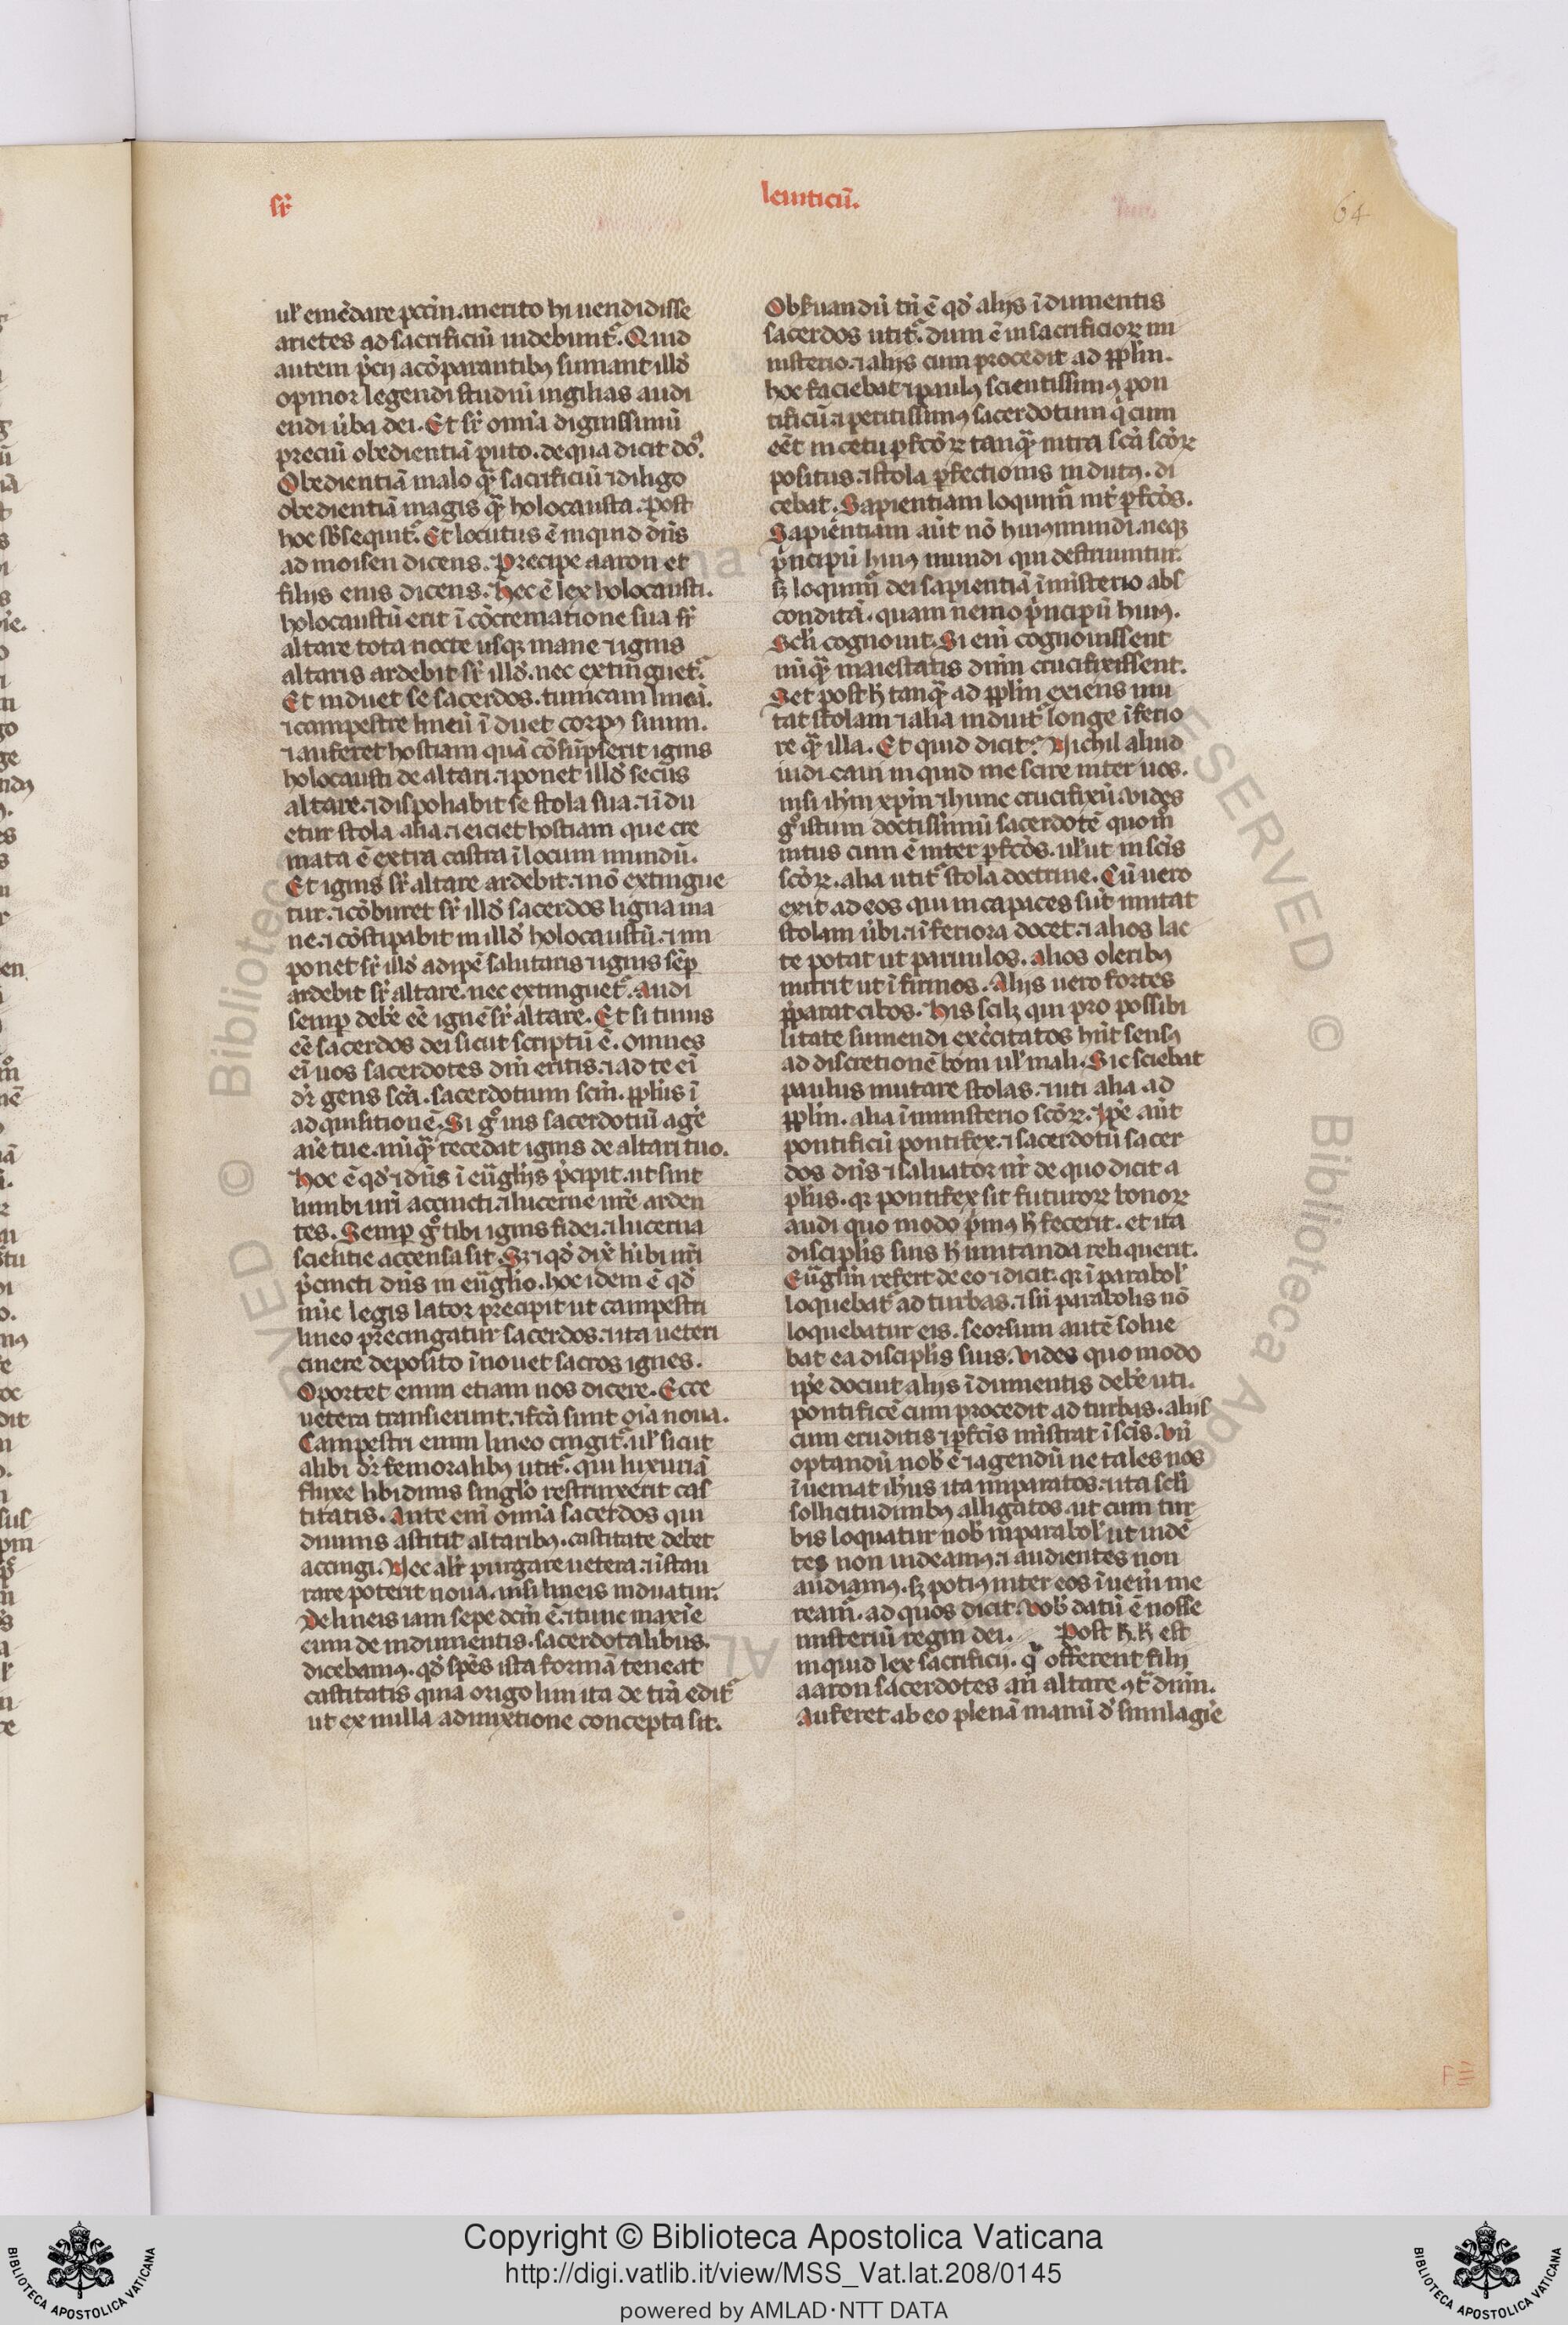 sr̄
leuiticū.
64
ul' em̄edare pccm̄. merito hi uendidisse
arietes ad sacrificiū uidebunt᷑. Quid
autem p̄cij a cōparantibꝯ sumant illd̓
opinor legendi studiū uigilias audi
endi ūba dei. Et sr̄ omīa dignissimū
preciū obedientiā puto. de qua dicit dō.
Obedientiā malo qͣ̄ sacrificiū ⁊ diligo
obedientiā magis qͣ̄ holocausta. Post
hoc sb̄sequit᷑. Et locutus ē inquid dn̄s
ad moisen dicens. Precipe aaron et
filijs eius dicens. Hec ē lex holocausti.
holocaustū erit ī cōcrematione sua sr̄
altare tota nocte usqꝫ mane ⁊ ignis
altaris ardebit sr̄ illd̓. nec extinguet᷑.
Et induet se sacerdos. tunicam lineā.
⁊ campestre lineū ī duet corpꝯ suum.
⁊ auferet hostiam quā cōsūpserit ignis
holocausti de altari. ⁊ ponet illd̓ secus
altare. ⁊ dispoliabit se stola sua. ⁊ ī du
etur stola alia. ⁊ eiciet hostiam que cre
mata ē extra castra ī locum mundū.
Et ignis sr̄ altare ardebit. ⁊ nō extingue
tur. ⁊ cōburet sr̄ illd̓ sacerdos ligna ma
ne. ⁊ cōstipabit in illd̓ holocaustū. ⁊ im
ponet sr̄ illd̓ adipē salutaris ⁊ ignis sēp
ardebit sr̄ altare. nec extinguet᷑. Audi
semp̱ debe̓ eē ignē sr̄ altare. Et si tu uis
eē sacerdos dei sicut scriptū ē. omnes
eī uos sacerdotes dn̄i eritis. ⁊ ad te eī
dr̄ gens scā. sacerdotum scm̄. pp̱lus ī
adquisitionē. Si gͦ uis sacerdotiū age̓
aīe tue. nūqͣ̄ recedat ignis de altari tuo.
Hoc ē qd̓ ⁊ dn̄s ī eūglijs p̄cipit. ut sint
lumbi ur̄i accincti. ⁊ lucerne ur̄e arden
tes. Semp̱ gͦ tibi ignis fidei. ⁊ lucerna
scientie accensa sit. Sꝫ ⁊ qd̓ dix̄ lūbi ur̄i
p̄cincti dn̄s in eūglio. hoc idem ē qd̓
nūc legis lator precipit ut campestri
lineo precingatur sacerdos. ⁊ ita ueteri
cinere deposito īnouet sacros ignes.
Oportet enim etiam nos dicere. Ecce
uetera transierunt. ⁊ fcā sunt oīa noua.
Campestri enim lineo cingit᷑. ul' sicut
alibi dr̄ femoralibꝯ utit᷑. qui luxuriā
fluxe libidinis singlo̓ restrinxerit cas
titatis. Ante em̄ omīa sacerdos qui
diuinis astitit altaribꝯ. castitate debet
accingi. Nec alit̓ purgare uetera. ⁊ īstau
rare poterit noua. nisi lineis induatur.
De lineis iam sepe dcm̄ ē. ⁊ tunc maxīe
cum de indumentis. sacerdotalibus.
dicebamꝯ. qd̓ spēs ista formā teneat
castitatis quia origo lini ita de trā edit᷑
ut ex nulla admixtione concepta sit.
Obs̓uandū tn̄ ē qd̓ alijs īdumentis
sacerdos utit᷑. dum ē in sacrificioꝝ mi
nisterio. ⁊ alijs cum procedit ad pp̱lm̄.
hoc faciebat ⁊ paulꝯ scientissimꝯ pon
tificū. ⁊ peritissimꝯ sacerdotum q̓ cum
eēt in cetu p̱fcōꝝ tanqͣ̄ intra scā scōꝝ
positus. ⁊ stola p̱fectionis indutꝯ. di
cebat. Sapientiam loquim̄ int̓ p̱fcōs.
Sapientiam aūt nō huiꝯ mundi. neqꝫ
p̓ncipū huiꝯ mundi qui destruuntur.
sꝫ loquim̄ dei sapientiā ī misterio abs
conditā. quam nemo p̓ncipū huiꝯ.
Scl̓i cognouit. Si em̄ cognouissent
nūqͣ̄ maiestatis dnm̄ crucifixissent.
Set post h̓ tanqͣ̄ ad pp̱lm̄ exiens mu
tat stolam ⁊ alia induit᷑ longe īferio
re qͣ̄ illa. Et quid dicit? Nichil aliud
iudicaui inquid me scire inter uos.
nisi ih̄m xp̄m ⁊ hunc crucifixū. Vides
gͦ istum doctissimū sacerdotē quom̄
intus cum ē inter p̱fcōs. ul' ut in scīs
scōꝝ. alia utit᷑ stola doctrine. Cū uero
exit ad eos qui incapaces sūt mutat
stolam ūbi. ⁊ īferiora docet. ⁊ alios lac
te potat ut paruulos. alios oleribꝯ
nutrit ut ī firmos. Alijs uero fortes
p̱parat cibos. His scilꝫ qui pro possibi
litate sumendi exercitatos hn̄t sensꝯ
ad discretionē boni ul' mali. Sic sciebat
paulus mutare stolas. ⁊ uti alia ad
pp̱lm̄. alia ī ministerio scōꝝ. Ip̄e aūt
pontificū pontifex. ⁊ sacerdotū sacer
dos dn̄s ⁊ saluator nr̄ de quo dicit a
pl̄us. qꝛ pontifex sit futuroꝝ bonoꝝ
audi quo modo p̓mꝯ h̓ fecerit. et ita
discipl̄is suis h̓ imitanda reliquerit.
Eūglm̄ refert de eo ⁊ dicit. qꝛ ī parabol'
loquebat᷑ ad turbas. ⁊ sn̄ parabolis nō
loquebatur eis. seorsum autē solue
bat ea discipl̄is suis. Vides quo modo
ip̄e docuit alijs īdumentis debe̓ uti.
pontificē cum procedit ad turbas. alijs
cum eruditis ⁊ p̱fcīs mīstrat ī scīs. Vn̄
optandū nob̓ ē ⁊ agendū ne tales nos
īueniat ih̄us ita imparatos. ⁊ ita scl̓i
sollicitudinibꝯ alligatos. ut cum tur
bis loquatur nob̓ in parabol' ut uidē
tes non uideamꝯ. ⁊ audientes non
audiamꝯ. sꝫ potiꝯ inter eos īuenim̄ me
ream̄. ad quos dicit. Vob̓ datū ē nosse
misteriū regni dei. Post h̓. h̓ est
inquid lex sacrificij. qͣ̄ offerent filij
aaron sacerdotes an̄ altare ↄt᷑ dnm̄.
Auferet ab eo plenā manū d̓ similagīe
Copyright © Biblioteca Apostolica Vaticana
http://digi.vatlib.it/view/MSS_Vat.lat.208/0145
powered by AMLAD·NTT DATA